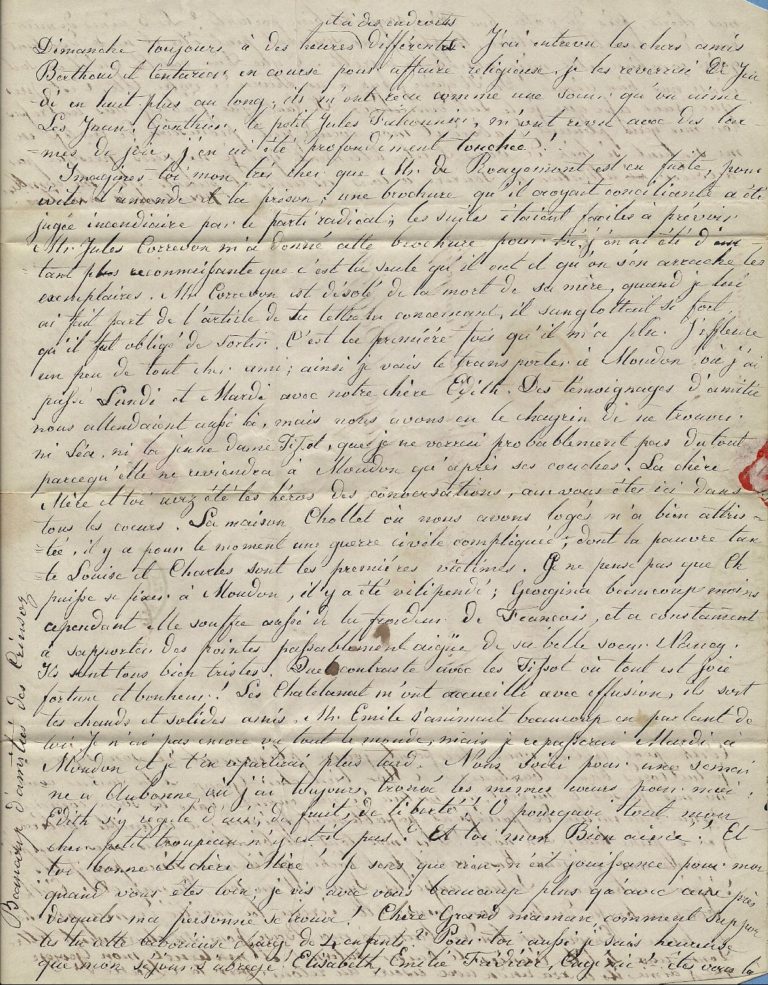 et à des endroits
Dimanche toujours à des heures différentes. J'ai entrevu les chers amis
Berthoud et Centurier en course pour affaire religieuse, je les reverrai De Jeu
di en huit plus au long, ils m'ont reçu comme une soeur qu'on aime
Les Juan. Gonthier, le petit Jules m'ont revu avec des lar
=mes de joie, j'en ai été profondément touchée!
Imagines toi mon très cher que Mr. de Rougemont est en fuite, pour
éviter l'amende et la prison; une brochure qu'il croyait conciliante a été
jugée incendiaire par le parti radical; les suites étaient faciles à prévoir
Mr. Jules Correvon m'a donné cette brochure pour toi, j'en ai été d'au
tant plus reconnaissante que c'est la seule qu'il ont et qu'on s'en arrache les
exemplaires. Mr. Correvon est désolé de la mort de sa mère, quand je lui
ai fait part de l'article de ta lettre la concernant, il sanglottait si fort
qu'il fut obligé de sortir. C'est la première fois qu'il m'a plu. J'effleure
un peu de tout cher ami; ainsi je vais te transporter à Moudon où j'ai
passé Lundi et Mardi avec notre chère Edith. Des témoignages d'amitié
nous attendaient aussi là, mais nous avons eu le chagrin de ne trouver
ni Léa, ni la jeune dame Tissot, que je ne verrai probablement pas du tout
parcequ'elle ne reviendra à Moudon qu'après ses couches. La chère
Mère et toi avez été les héros des conversations, car vous êtes ici dans
tous les coeurs. La maison Chollet où nous avons logés m'a bien attris
=tée, il y a pour le moment une guerre civile compliquée, dont la pauvre tan
te Louise et Charles sont les premières victimes. Je ne pense pas que Ch
puisse se fixer à Moudon, il y a été vilipendé; Georgina beaucoup moins
cependant elle souffre aussi de la froideur de François, et a constament
à supporter des pointes passablement aigües de sa belle soeur Nancy.
Ils sont tous bien tristes. Quel contraste avec les Tissot où tout est joie
fortune et bonheur! Les Chatelanat m'ont accueillie avec effusion, ils sont
tes chauds et solides amis. Mr. Emile s'animait beaucoup en parlant de
toi. Je n'ai pas encore vu tout le monde, mais je repasserai Mardi à
Moudon et je t'en reparlerai plus tard. Nous voici pour une semai
ne à Aubonne où j'ai toujours trouvé les mêmes coeurs pour moi.
Edith s'y régale d'air, de fruits, de liberté! O pourquoi tout mon
cher petit troupeau n'y est il pas? Et toi mon Bien aimé! Et
toi bonne et chère Mère! je sens que rien n'est jouissance pour moi
quand vous êtes loin, je vis avec vous beaucoup plus qu'avec ceux près
desquels ma personne se trouve! Chère Grand maman comment suppor
tes tu cette laborieuse charge de 4 enfants? Pour toi aussi je suis heureuse
que mon séjour s'abrège! Elisabeth, Emilie Frédéric, Eugénie! êtes vous là
Bonjour d'amitiés des Crinsoz